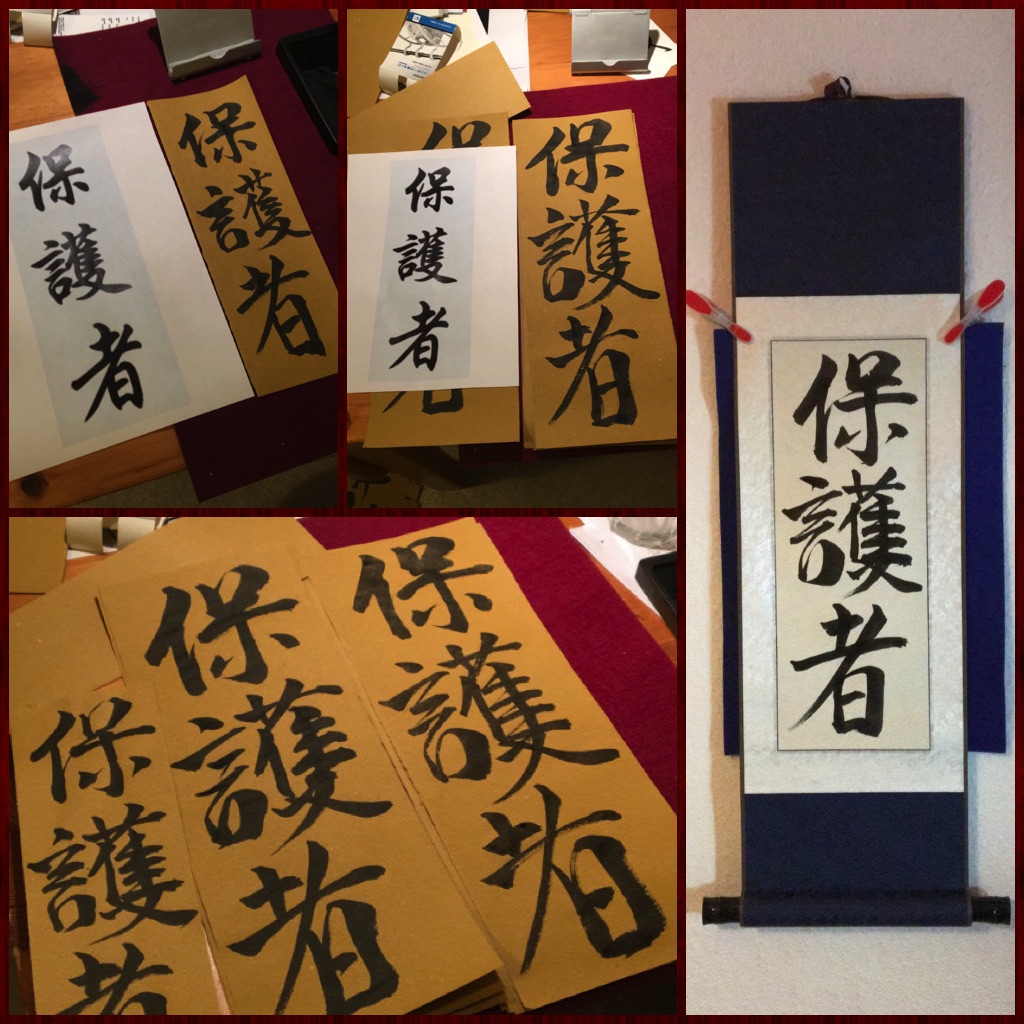 保護者
保護者
保護者
保
者
保護者
保護者
保護者
保護者
保護者